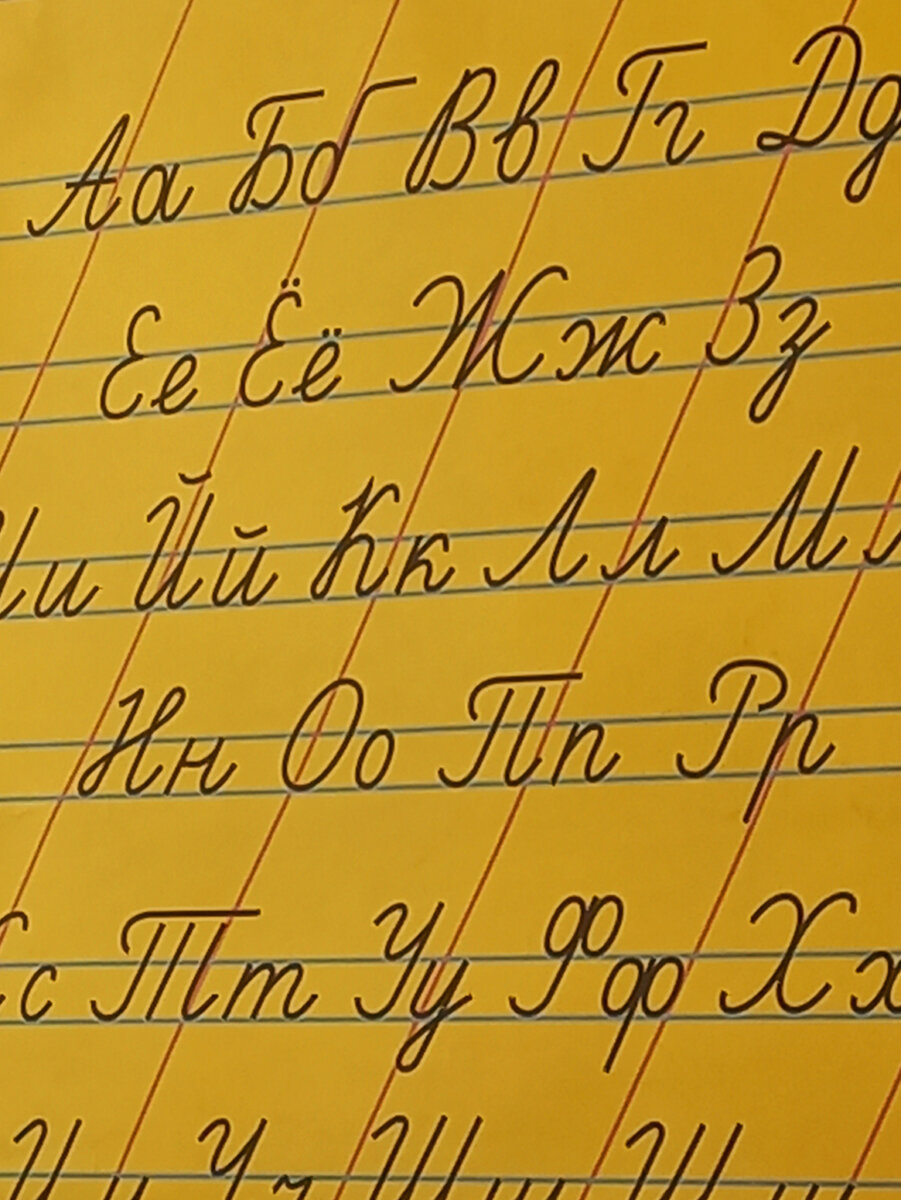 Аа Бб Вв Гг Дд
Ее Ёё Жж Зз
Ии Йй Кк Лл М
Нн Оо Пп Рр
Сс Тт Уу Фф Хх
Цц Чч Шш Щ